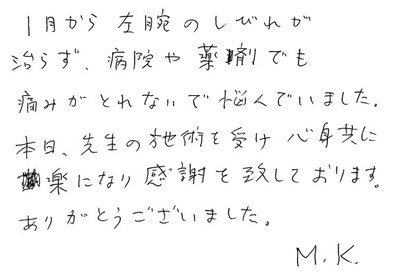 1月から左腕のしびれが
治らず、病院や薬剤でも
痛みがとれないで悩んでいました。
本日、先生の施術を受け心身共に
楽になり感謝を致しております。
ありがとうございました。
M.K.